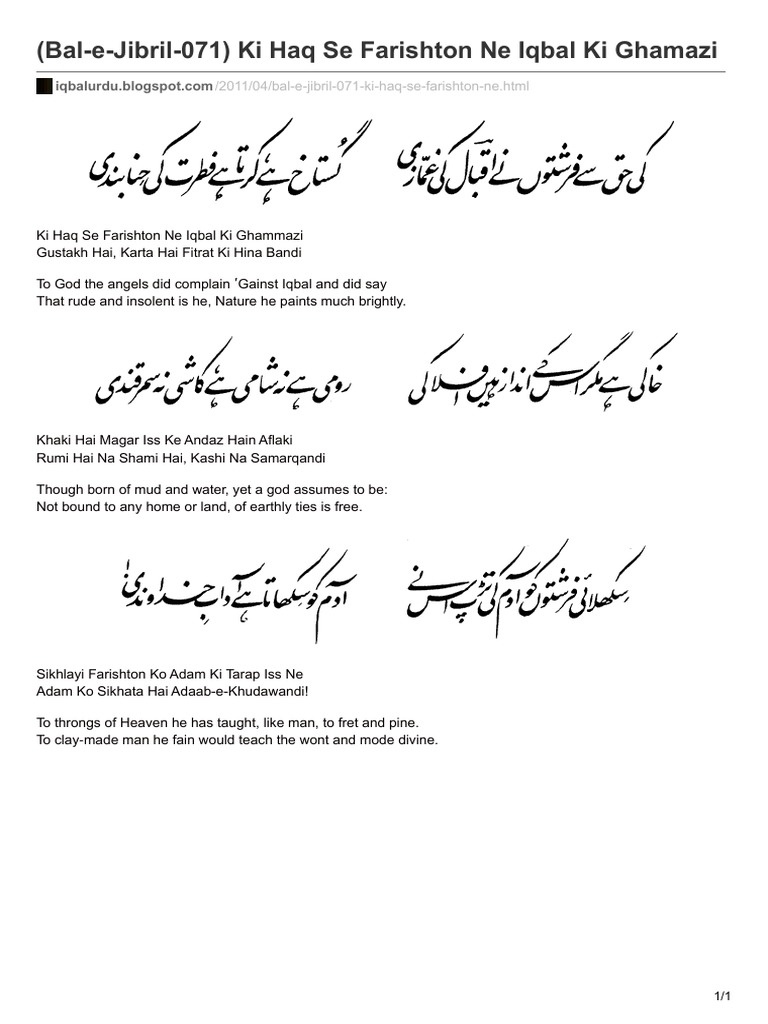 (Bal-e-Jibril-071) Ki Haq Se Farishton Ne Iqbal Ki Ghamazi
iqbalurdu.blogspot.com/2011/04/bal-e-jibril-071-ki-haq-se-farishton-ne.html
کی حق سے فرشتوں نے اقبالؔ کی غمّازی
گُستاخ ہے کرتا ہے فطرت کی حِنا بندی
Ki Haq Se Farishton Ne Iqbal Ki Ghammazi
Gustakh Hai, Karta Hai Fitrat Ki Hina Bandi
To God the angels did complain ʹGainst Iqbal and did say
That rude and insolent is he, Nature he paints much brightly.
خاکی ہے مگر اس کے انداز ہیں افلاکی
رومی ہے نہ شامی ہے کاشی نہ سمرقندی
Khaki Hai Magar Iss Ke Andaz Hain Aflaki
Rumi Hai Na Shami Hai, Kashi Na Samarqandi
Though born of mud and water, yet a god assumes to be:
Not bound to any home or land, of earthly ties is free.
سِکھلائی فرشتوں کو آدم کی تڑپ اس نے
آدم کو سِکھاتا ہے آدابِ خداوندی!
Sikhlayi Farishton Ko Adam Ki Tarap Iss Ne
Adam Ko Sikhata Hai Adaab-e-Khudawandi!
To throngs of Heaven he has taught, like man, to fret and pine.
To clay-made man he fain would teach the wont and mode divine.
1/1